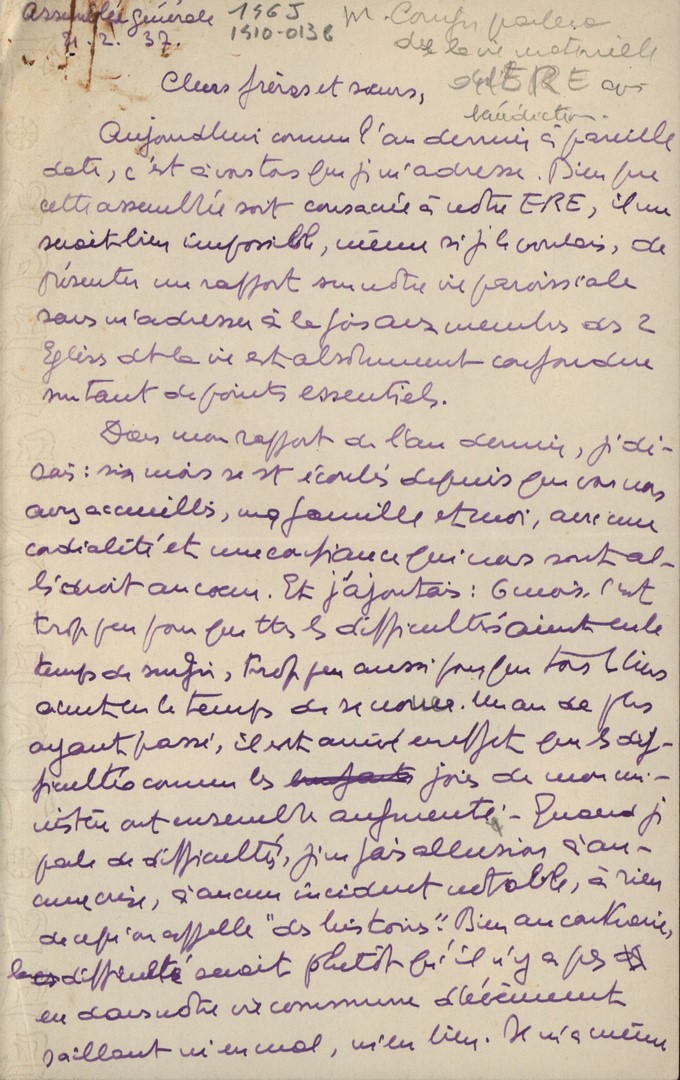 Assemblée générale
21.2.37.
196J
1910-0136
M. parlera
de la vie matérielle
de l'ERE
bénédiction.
Chers frères et sœurs,
Aujourdhui comme l'an dernier à pareille
date, c'est à vous tous que je m'adresse. Bien que
cette assemblée soit consacrée à notre ERE, il me
serait bien impossible, même si je le voulais, de
présenter un rapport sur notre vie paroissiale
sans m'adresser à la fois aux membres des 2
Eglises dt la vie est absolument confondue
sur tant de points essentiels.
Dans mon rapport de l'an dernier, je di-
sais : six mois se st écoulés depuis que vous nous
avez accueillis, ma famille et moi, avec une
cordialité et une confiance qui nous sont al-
lés droit au cœur. Et j'ajoutais : 6 mois, c'est
trop peu pour que ttes ls difficultés aient eu le
temps de surgir, trop peu aussi pour que tous ls liens
aient eu le temps de se nouer. Un an de plus
ayant passé, il est arrivé en effet que ls dif-
ficultés comme les joies de mon mi-
nistère ont ensemble augmenté. - Quand je
parle de difficultés, je ne fais allusion à au-
cune crise, à aucun incident notable, à rien
de ce qu'on appelle "des histoires". Bien au contraire,
la difficulté serait plutôt qu'il n'y a pas
eu dans notre vie commune d'évènement
saillant ni en mal, ni en bien. Je m'a même